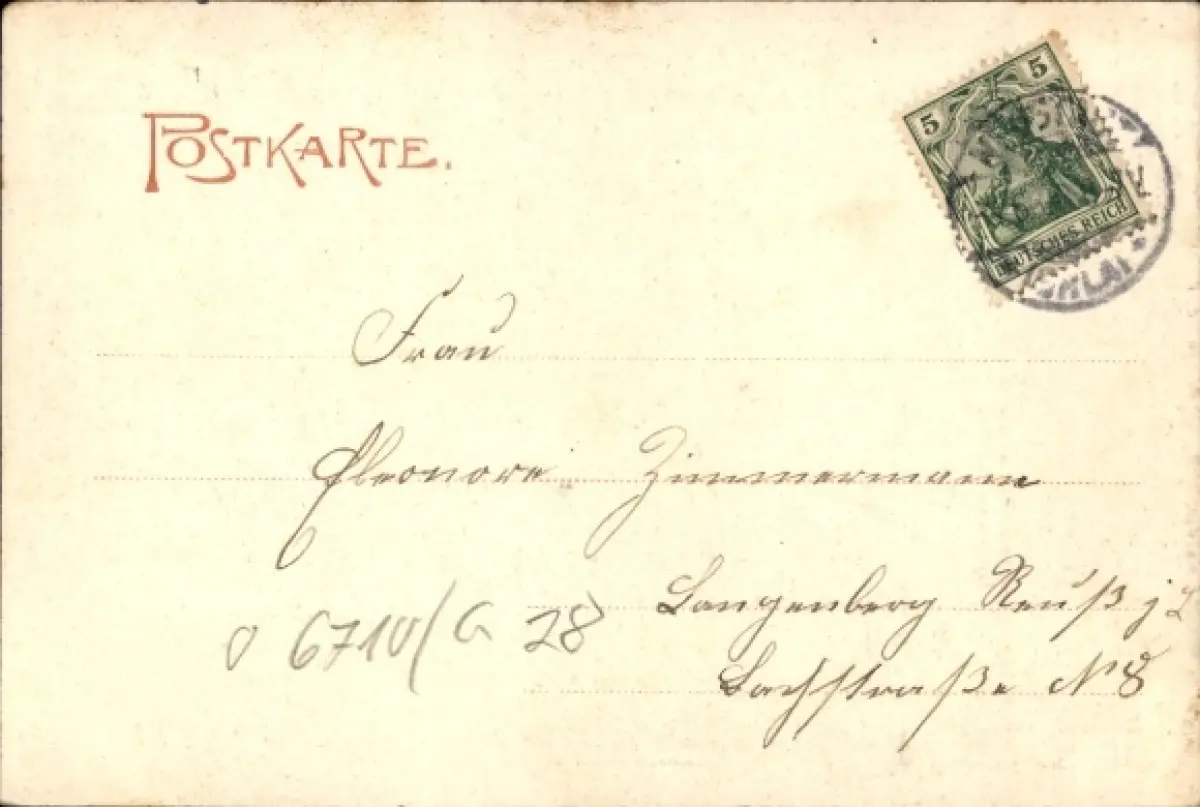 POSTKARTE.
5 5
DEUTSCHES REICH
Frau
Eleonore Zimmermann
Langenberg Reuß j L
o 6710/G 28
Bachstraße N 8